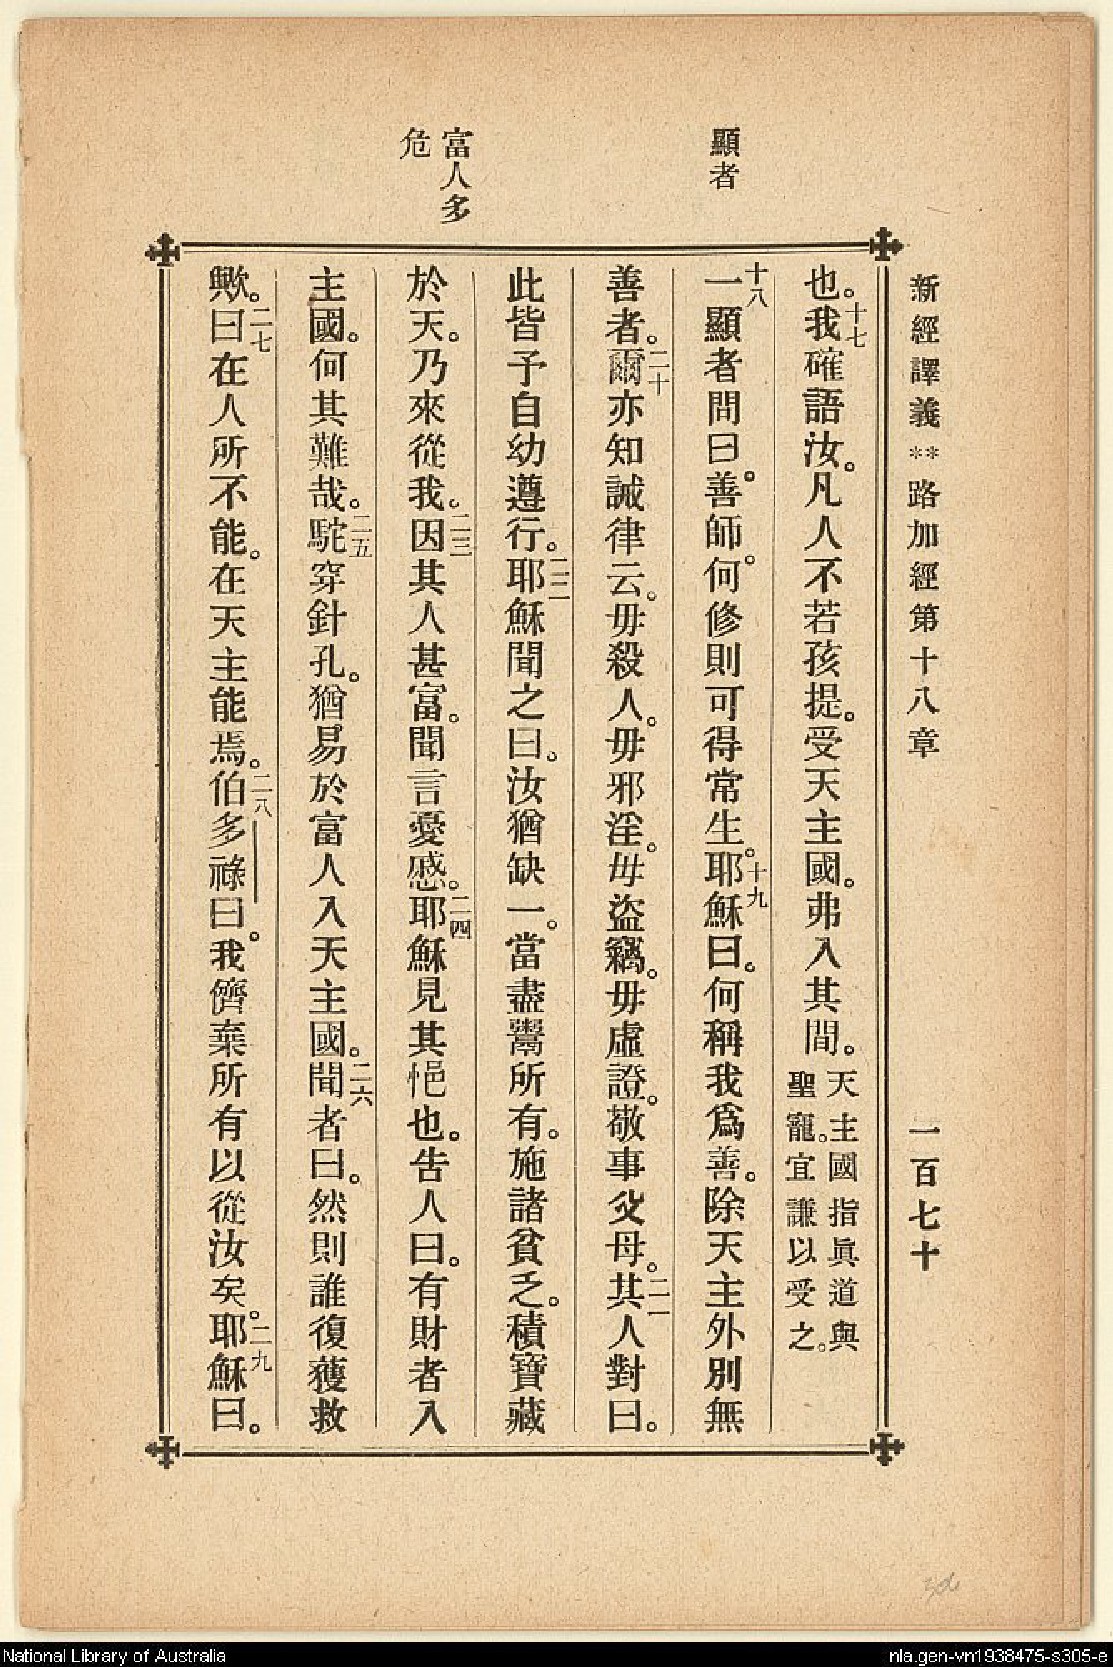 新經譯義 ** 路加經第十八章 一百七十
顯者
富人多
危
也。十七我確語汝。凡人不若孩提。受天主國。弗入其間。天主國指眞道與聖寵。宜謙以受之。
十八一顯者問曰。善師。何修則可得常生。十九耶穌曰。何稱我爲善。除天主外別無
善者。二十爾亦知誡律云。毋殺人。毋邪淫。毋盜竊。毋虛證。敬事父母。二一其人對曰。
此皆予自幼遵行。二二耶穌聞之曰。汝猶缺一。當盡鬻所有。施諸貧乏。積寶藏
於天。乃來從我。二三因其人甚富。聞言憂慼。二四耶穌見其悒也。告人曰。有財者入
主國。何其難哉。二五駝穿針孔。猶易於富人入天主國。二六聞者曰。然則誰復獲救
歟。二七曰在人所不能。在天主能焉。二八伯多祿曰。我儕棄所有以從汝矣。二九耶穌曰。
National Library of Australia
nla.gen-vn1938475-s305-e